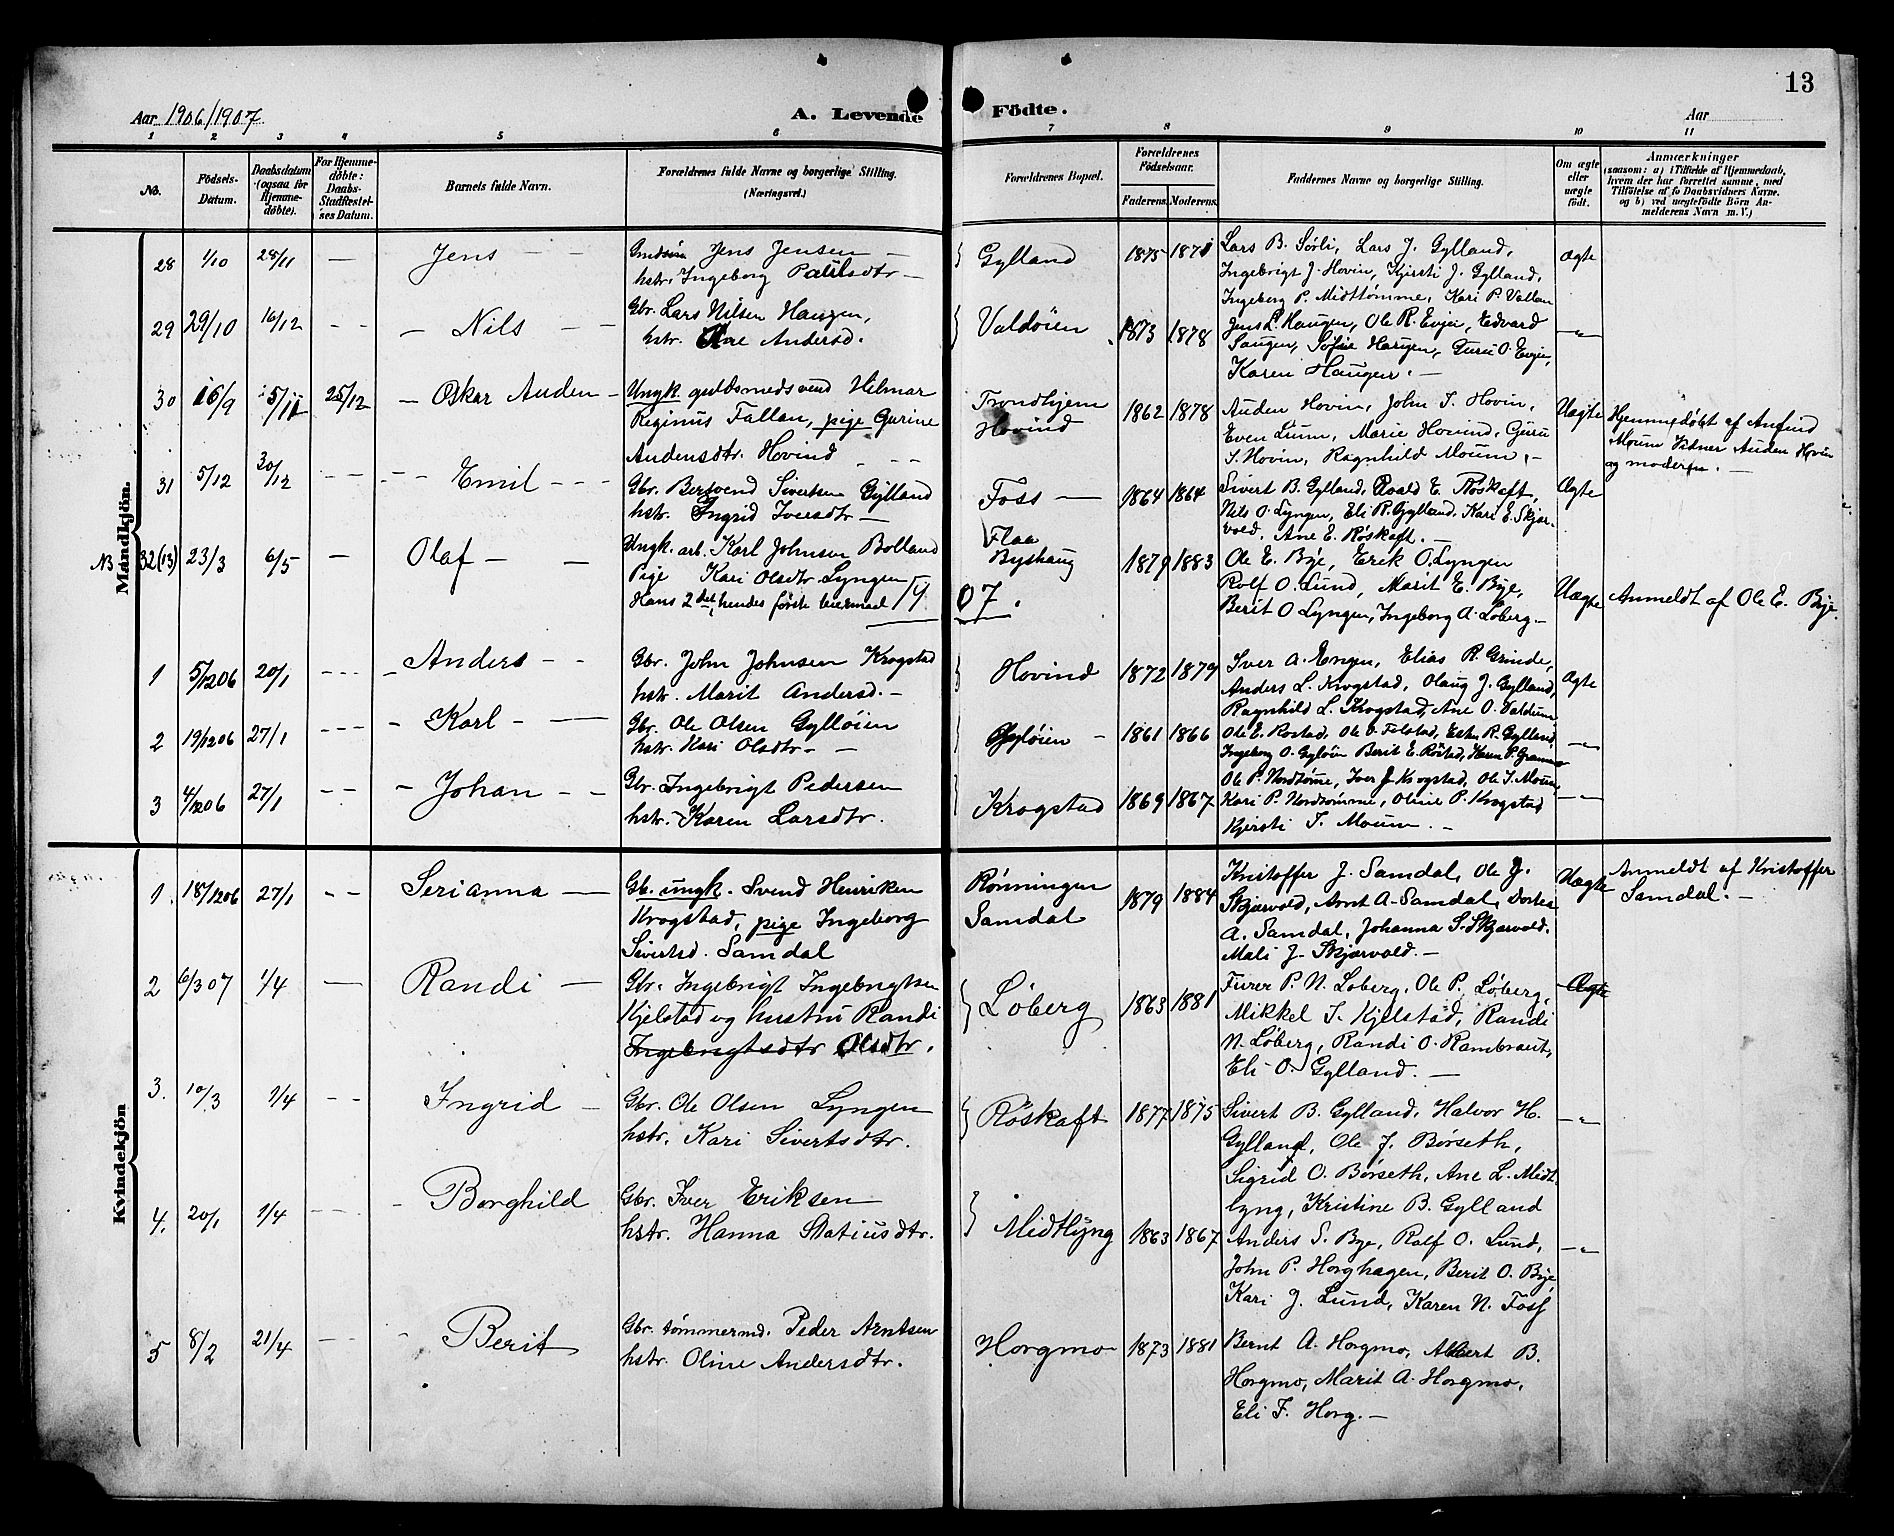 13
Aar 1906/1907
A. Levende Födte.
Aar
1 2 3 4 5 6 7 8 9 10 11
No.
Födsels-Datum.
Daabsdatum (ogsaa for Hjemmedöbte).
For Hjemmedöbte: Daabs-Stadfæstelses Datum.
Barnets fulde Navn.
Forældrenes fulde Navne og borgerlige Stilling. (Næringsvei.)
Forældrenes Bopæl.
Forældrenes Födselsaar.
Faderens. Moderens.
Faddernes Navne og borgerlige Stilling.
Om ægte eller uægte født.
Anmærkninger
(saasom: a) i Tilfælde af Hjemmedaab, hvem der har forrettet samme, med Tilføielse af to Daabsvidners Navne, og b) ved uægtefödte Börn Anmelderens Navn m. V.)
Mandkjön.
28 1/10 28/11 — Jens — —
Gmdsön Jens Jensen —
hstr. Ingeborg Paulsdtr —
Gylland 1875 1871
Lars B. Sørli, Lars J. Gylland,
Ingebrigt J. Hovin, Kjersti J. Gylland,
Ingeborg P. Midttømme, Kari P. Vollan
Ægte
29 29/10 16/12 - - — Nils — —
Gbr. Lars Nilsen Haugen,
hstr. Ane Andersd.
Valdöien 1873 1878
Jens L. Haugen, Ole R. Evjen, Edvard
Haugen, Sofie Haugen, Guru O. Evjen,
Karen Haugen. —
—"—
30 16/9 5/11 25/12 — Oskar Auden —
Ungk. guldsmedsvend Hilmar
Reginus Fallan, pige Gurine
Audensdtr. Hovind — — —
Trondhjem
Hovind
1862 1878
Auden Hovin, John S. Hovin,
Even Lium, Marie Hovind, Guru
S. Hovin, Ragnhild Moum. —
Uægte
Hjemmedöbt af Anfind
Moum Vidner Auden Hovin
og moderen. —
31 5/12 30/12 - - - - - Emil - - -
Gbr. Bersvend Sivertsen Gylland
hstr. Ingrid Iversdtr —
Foss — 1864 1864
Sivert B. Gylland, Roald E. Röskaft,
Nils O. Lyngen, Eli R. Gylland, Kari E. Skjær-
vold, Ane E. Røskaft. —
Ægte
NB 32(13) 23/3 6/5 — Olaf —
Ungk. arb. Karl Johnsen Bolland
Pige Kari Olsdtr Lyngen —
Hans 2det, hendes første leiermaal
Flaa
Byshaug
1879 1883
Ole E. Bye, Erik O. Lyngen
Rolf O. Lund, Marit E. Bye,
Berit O. Lyngen, Ingeborg A. Løberg —
Uægte Anmeldt af Ole E. Bye.
19 07.
1 5/12 06 20/1 - - - - Anders - -
Gbr. John Johnsen Krogstad
hstr. Marit Andersd. —
Hovind 1872 1879
Iver A. Engen, Elias R. Grinde,
Anders L. Krogstad, Olaug J. Gylland,
Ragnhild L. Krogstad, Ane O. Valdum
Ægte
2 19/12 06 27/1 - - - - Karl - —
Gbr. Ole Olsen Gylløien
hstr. Kari Olsdtr. — —
Gyløien — 1861 1866
Ole E. Rostad, Ole O. Folstad, R. Gylland,
Ingeborg O. Gyløin Berit E. Röstad,
—"—
3 4/12 06 27/1 - - — Johan — -
Gbr. Ingebrigt Pedersen
hstr. — Karen Larsdtr.
Krogstad 1869 1867
Ole P. Nordtømme, Iver J. Krogstad, Ole S. Moum,
Kari P. Nordtømme, Oline P. Krogstad,
Kjersti S. Moum. —
—"—
Kvindekjön
1. 18/12 06 27/1 - - Serianna —
Gb. ungk. Svend Henriksen
Krogstad, pige Ingeborg
Sivertsd. Samdal
Rönningen
Samdal
1879 1884
Kristoffer J. Samdal, Ole J.
Skjærvold, Arnt A. Samdal, Dortea
A. Samdal, Johanna S. Skjærvold.
Mali J. Skjærvold. —
Uægte
Anmeldt af Kristoffer
Samdal. —
2 6/3 07 1/4 — Randi —
Gbr. Ingebrigt Ingebrigtsen
Kjelstad og hustru Randi
Ingebrigtsdtr Olsdtr.
Løberg 1863 1881
Furer P. N. Løberg, Ole P. Løberg,
Mikkel I. Kjelstad, Randi
N. Løberg, Randi O. Rambraut,
Eli O. Gylland. —
Ægte
3. 10/3 1/4 - - Ingrid —
Gbr. Ole Olsen Lyngen
hstr. Kari Sivertsdtr.
Røskaft 1877 1875
Sivert B. Gylland, Halvor H.
Gylland, Ole J. Børseth,
Sigrid O. Børseth, Ane L. Midt-
lyng, Kristine B. Gylland
—"—
4. 20/1 1/4 - - - - Borghild
Gbr. Iver Eriksen
hstr. Hanna Statiusdtr.
Midtlyng 1863 1867
Anders S. Bye, Rolf O. Lund,
John P. Horghagen, Berit O. Bye,
Kari J. Lund, Karen N. Foss
—"—
5 8/2 21/4 — - Berit
Gbr. tømmermd. Peder Arntsen
hstr. Oline Andersdtr.
Horgmo 1873 1881
Bernt A. Horgmo, Albert B.
Horgmo, Marit A. Horgmo,
Eli F. Horg. —